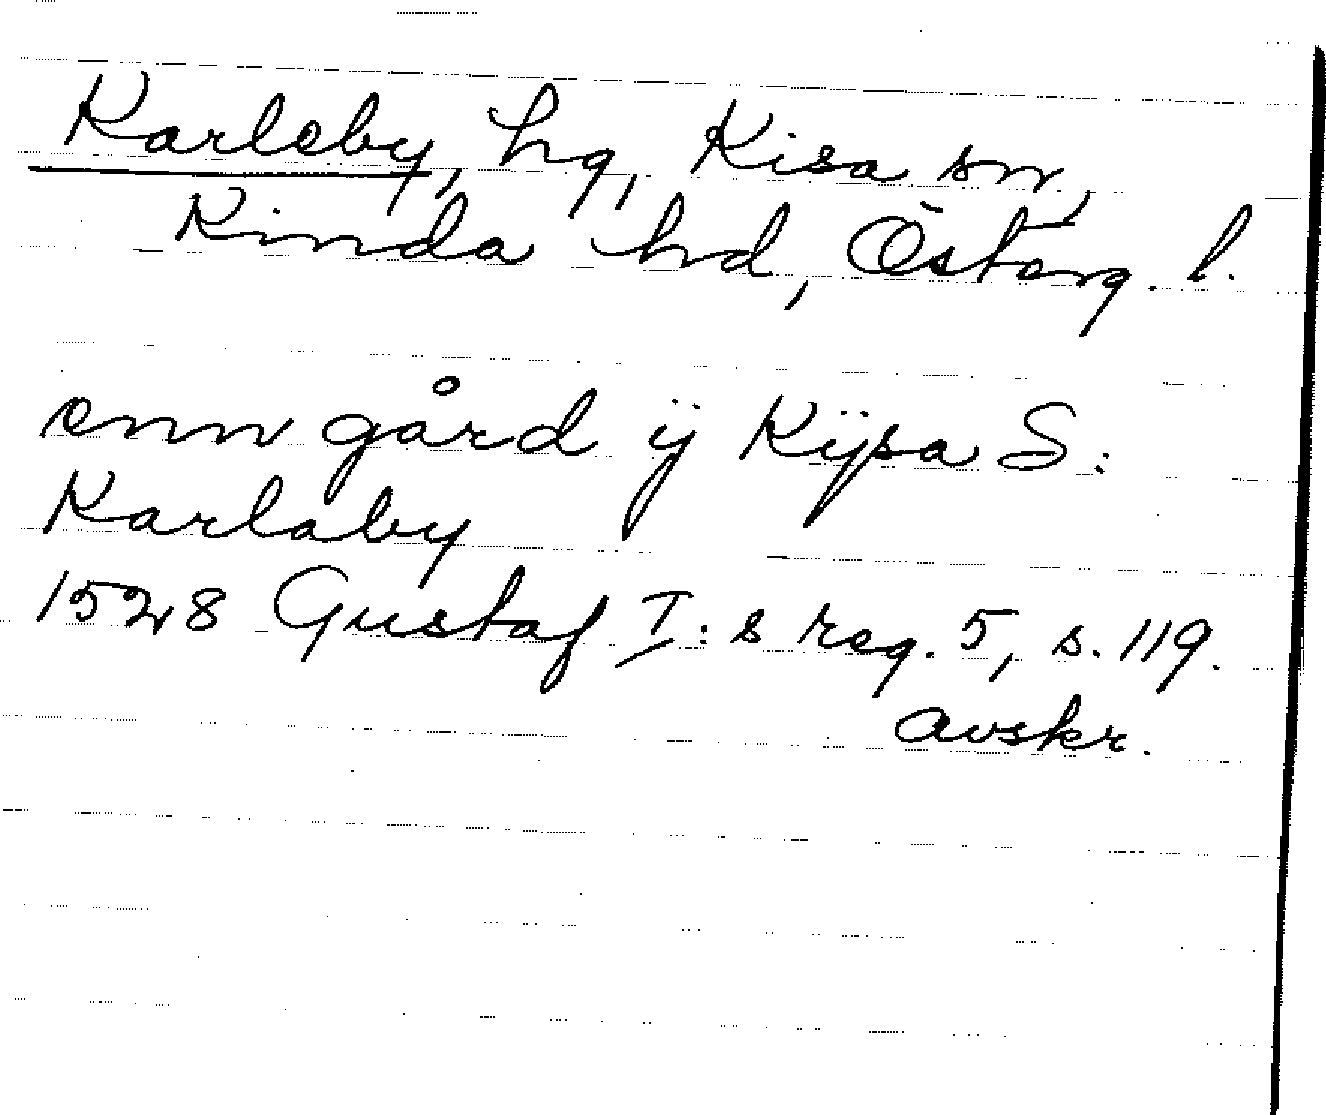 Karleby, hg, Kisa sn,
Kinda hd, Österg. l.
enn gård ÿ Kÿsa S:
Karlaby
1528 Gustaf I:s reg. 5, s. 119.
avskr.